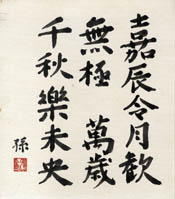 嘉辰令月歓
無極 萬歳
千秋樂未央
孫